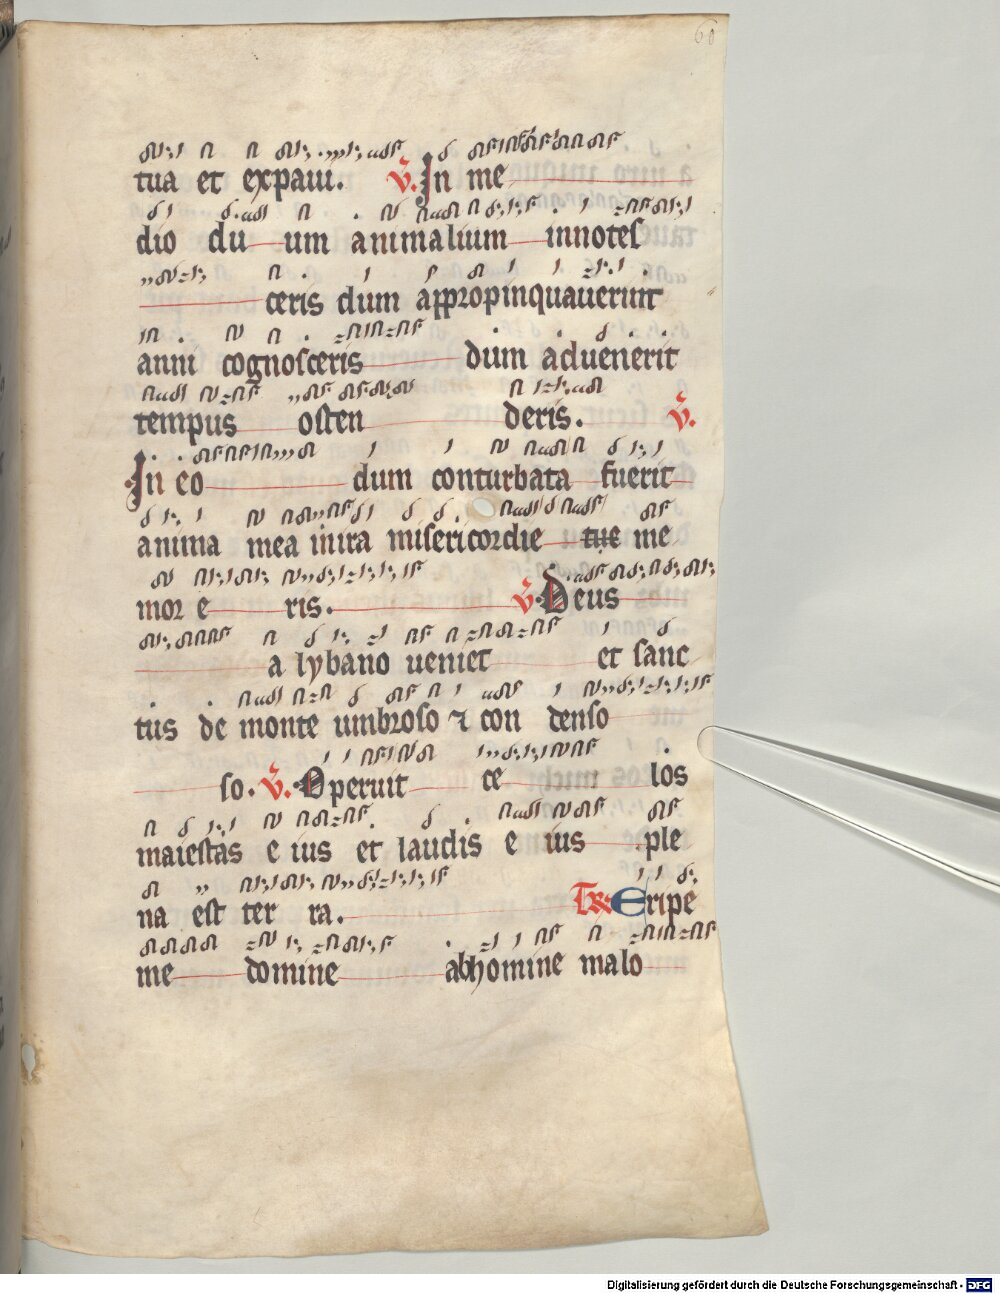 60
tua et expaui. V. In me
dio du um animalium innotes
ceris dum appropinquauerint
anni cognosceris dum aduenerit
tempus osten deris. V.
In eo dum conturbata fuerit
anima mea in ira misericordie tue me
mor e ris. V. Deus
a lybano ueniet et sanc
tus de monte umbroso ⁊ con denso
so. V. Operuit ce los
maiestas e ius et laudis e ius ple
na est ter ra. Tr Eripe
me domine ab homine malo
Digitalisierung gefördert durch die Deutsche Forschungsgemeinschaft - DFG